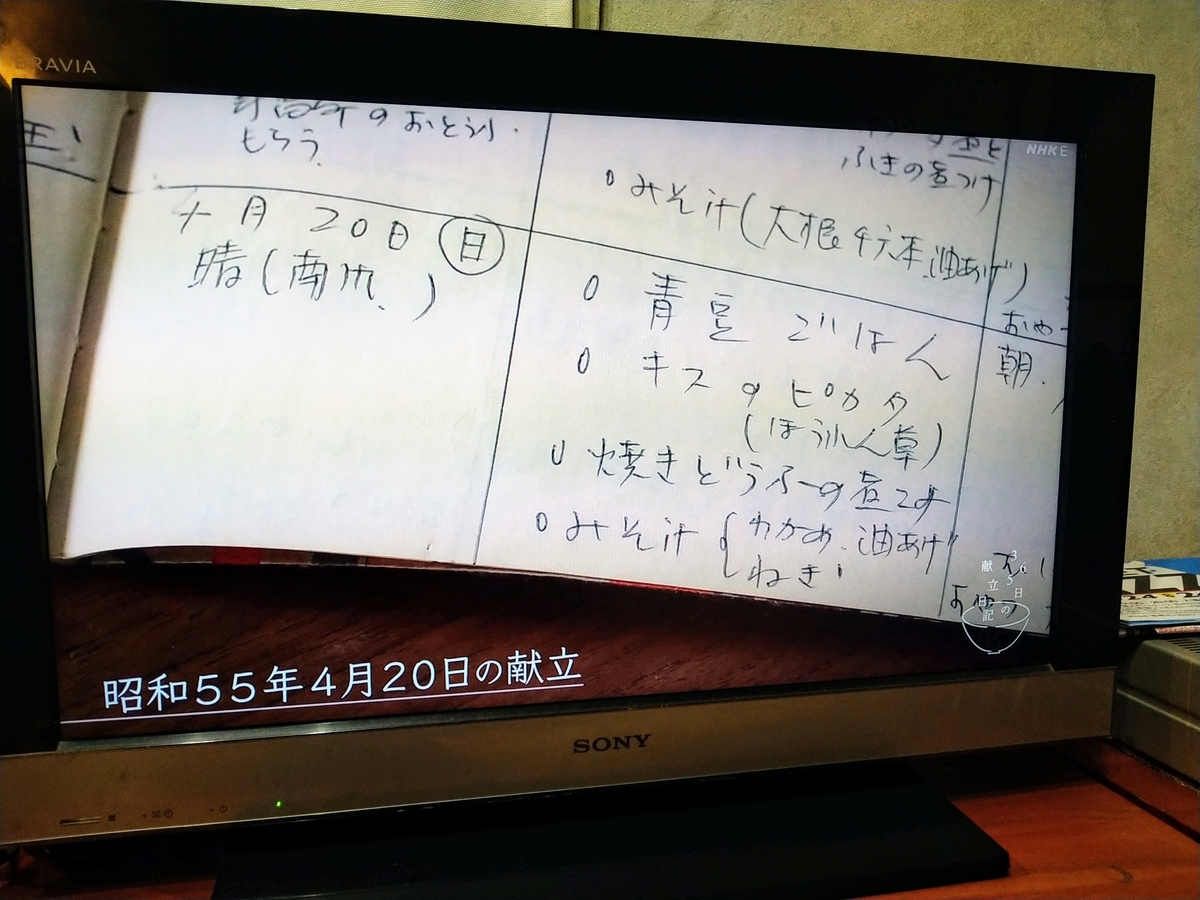 BRAVIA
NHKE
のおとうふ
もらう。
4月20日(日)
晴(南風)
ふきの煮つけ
○みそ汁(大根千六本、油あげ)
○青豆ごはん
○キスのピカタ
(ほうれん草)
○焼きどうふの煮こみ
○みそ汁{わかめ、油あげ
ねぎ
おや
朝.
365日の
献立日記
昭和55年4月20日の献立
SONY